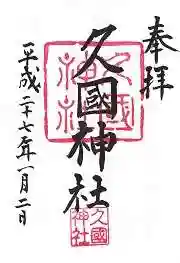 奉拝
久國神社
平成二十七年一月二日
久國神社
久國
神社